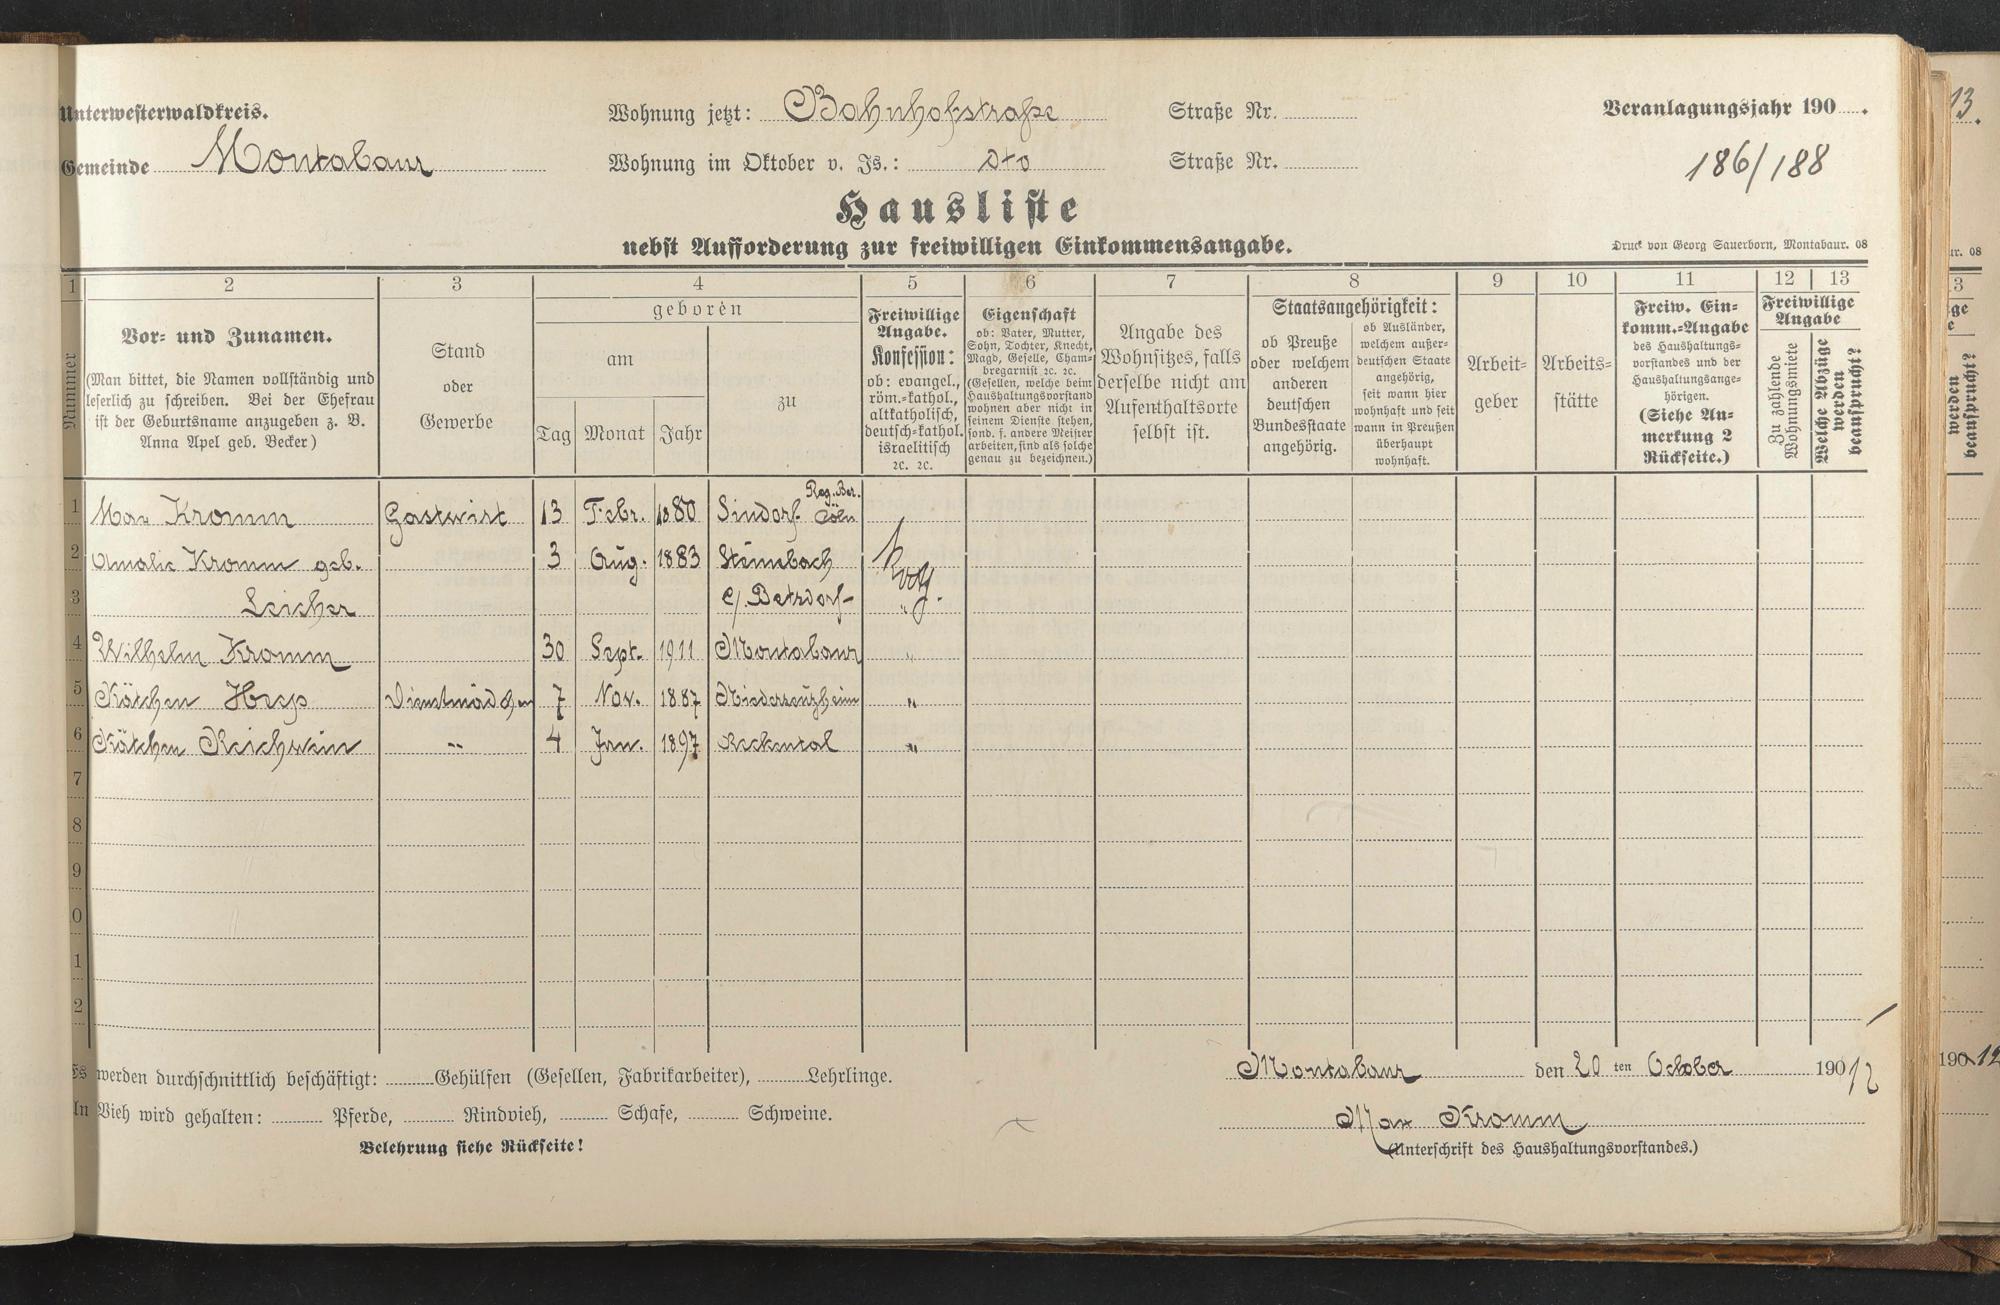 Unterwesterwaldkreis.
Wohnung jetzt: Bahnhofstraße Straße Nr.
Veranlagungsjahr 190 .
Gemeinde Montabaur
Wohnung im Oktober v. Js.: dto Straße Nr.
186/188
Hausliste
nebst Aufforderung zur freiwilligen Einkommensangabe.
Druck von Georg Sauerborn, Montabaur. 08
1 2 3 4 5 6 7 8 9 10 11 12 13
Nummer
Vor- und Zunamen.
(Man bittet, die Namen vollständig und
leserlich zu schreiben. Bei der Ehefrau
ist der Geburtsname anzugeben z. B.
Anna Apel geb. Becker)
Stand
oder
Gewerbe
geboren
am
Tag Monat Jahr
zu
Freiwillige
Angabe.
Konfession:
ob: evangel.,
röm.-kathol.,
altkatholisch,
deutsch-kathol.
israelitisch
ꝛc. ꝛc.
Eigenschaft
ob: Vater, Mutter,
Sohn, Tochter, Knecht,
Magd, Geselle, Cham-
bregarnist ꝛc. ꝛc.
(Gesellen, welche beim
Haushaltungsvorstand
wohnen aber nicht in
seinem Dienste stehen,
sond. f. andere Meister
arbeiten, sind als solche
genau zu bezeichnen.)
Angabe des
Wohnsitzes, falls
derselbe nicht am
Aufenthaltsorte
selbst ist.
Staatsangehörigkeit:
ob Preuße
oder welchem
anderen
deutschen
Bundesstaate
angehörig.
ob Ausländer,
welchem außer-
deutschen Staate
angehörig,
seit wann hier
wohnhaft und seit
wann in Preußen
überhaupt
wohnhaft.
Arbeit-
geber
Arbeits-
stätte
Freiw. Ein-
komm.-Angabe
des Haushaltungs-
vorstandes und der
Haushaltungsange-
hörigen.
(Siehe An-
merkung 2
Rückseite.)
Freiwillige
Angabe
Zu zahlende
Wohnungsmiete
Welche Abzüge
werden
beansprucht?
1 Max Kromm Gastwirt 13 Febr. 1880 Sindorf Reg. Bez. Cöln
2 Amalie Kromm geb. 3 Aug. 1883 Steinebach
3 Leicher b/ Betzdorf "
4 Wilhelm Kromm 30 Sept. 1911 Montabaur "
5 Kätchen Hesp Dienstmädchen 7 Nov. 1887 Niederzeuzheim "
6 Kätchen Reichwein " 4 Jan. 1897 Reckental "
7
8
9
0
1
2
Es werden durchschnittlich beschäftigt: Gehülfen (Gesellen, Fabrikarbeiter), Lehrlinge.
Montabaur den 20 ten October 19012
An Vieh wird gehalten: Pferde, Rindvieh, Schafe, Schweine.
Max Kromm
Belehrung siehe Rückseite!
(Unterschrift des Haushaltungsvorstandes.)